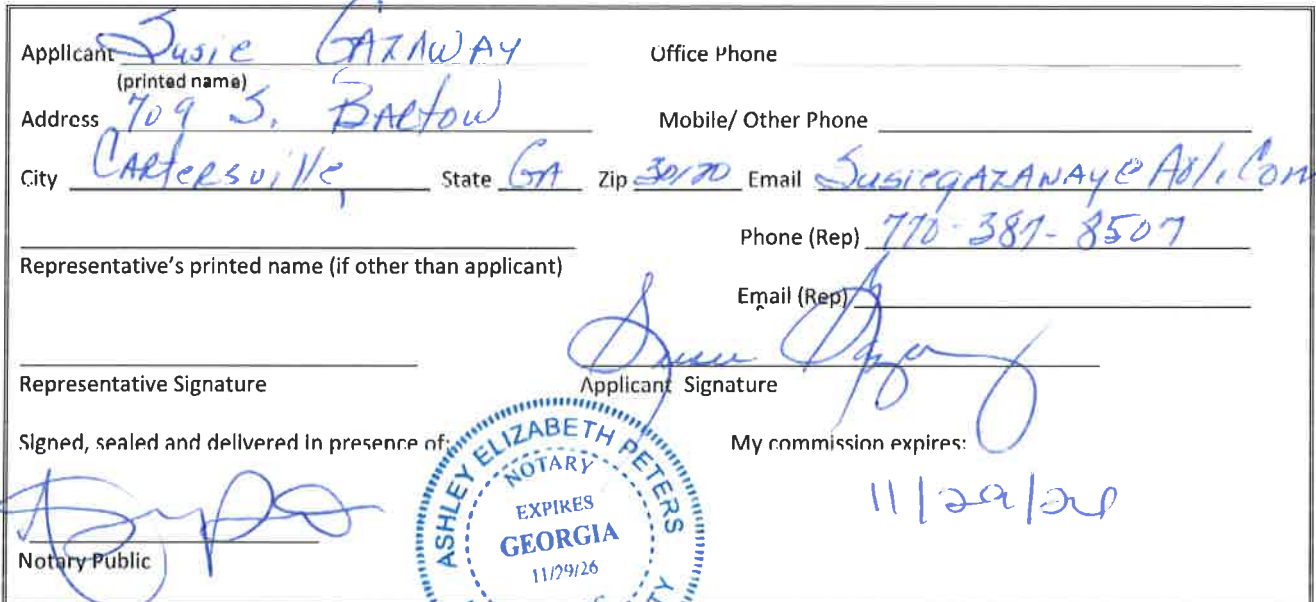 Applicant Susie GAZAWAY Office Phone
(printed name)
Address 709 S. BARTOW Mobile/ Other Phone
City CARTERSVILLE, State GA Zip 30120 Email SusiegAZAWAY@Aol.Com
Phone (Rep) 770-387-8507
Representative's printed name (if other than applicant)
Email (Rep)
Representative Signature Applicant Signature
Signed, sealed and delivered in presence of: My commission expires:
ASHLEY ELIZABETH PETERS
NOTARY
EXPIRES
GEORGIA
11/29/26
11/29/26
Notary Public